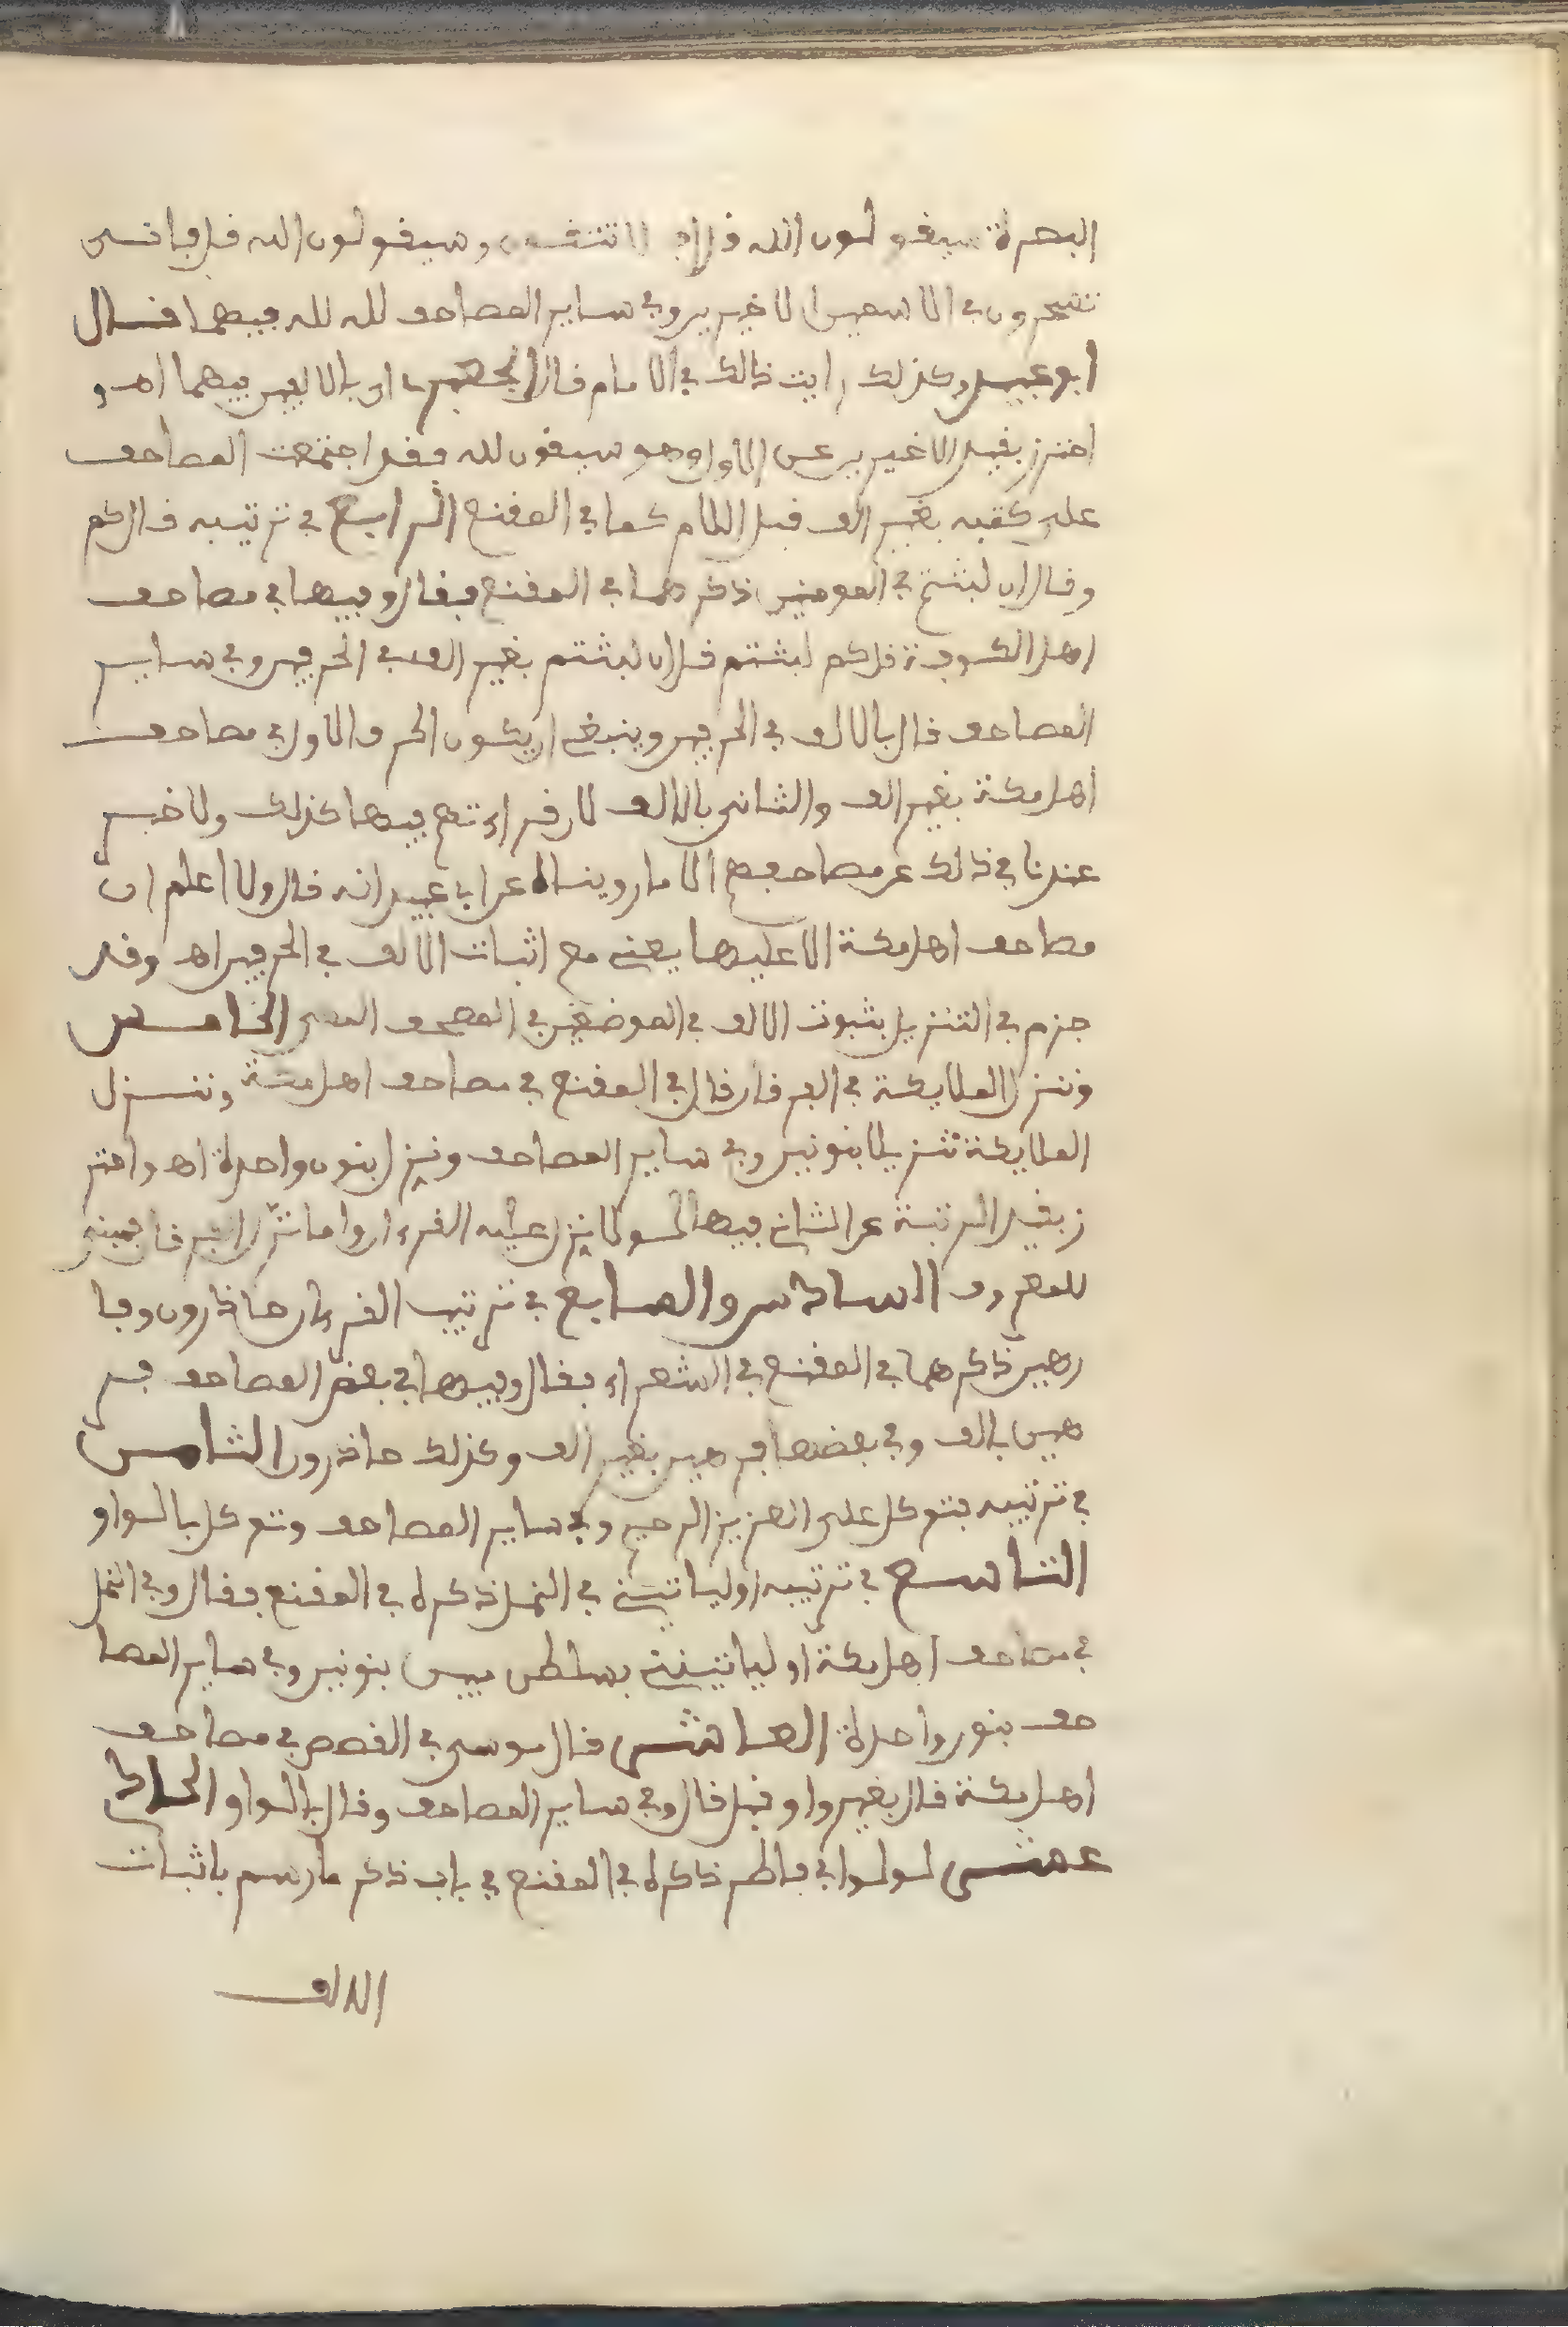 البصرة سيقولون الله قل افلا تتقون وسيقولون الله قل فانى
تسحرون في الاسمين الاخيرين وفي ساير المصاحف لله لله فيهما قال
ابو عبيد وكذلك رايت ذلك في الامام قال الجعبري اي بالالفين فيهما اهـ و
احترز بقيد الاخيرين عن الاول وهو سيقولون لله فقد اجتمعت المصاحف
على كتبه بغير الف قبل اللام كما في المقنع الرابع في ترتيبه قال كم
وقال ان لبثتم في المومنين ذكرهما في المقنع فقال وفيها في مصاحف
اهل الكوفة قل كم لبثتم قل ان لبثتم بغير الف في الحرفين وفي ساير
المصاحف قال بالالف في الحرفين وينبغي ان يكون الحرف الاول في مصاحف
اهل مكة بغير الف والثاني بالالف لان قراءتهم فيها كذلك ولا خبر
عندنا في ذلك عن مصاحفهم الا ما رويناه عن ابي عبيد انه قال ولا اعلم ان
مصاحف اهل مكة الا عليها يعني مع اثبات الالف في الحرفين اهـ وقد
جزم في التنزيل بثبوت الالف في الموضعين في المصحف المكي الخامس
وننزل الملايكة في الفرقان قال في المقنع في مصاحف اهل مكة وننزل
الملايكة تنزيلا بنونين وفي ساير المصاحف ونزل بنون واحدة اهـ واحتر
ز بقيد المرتبة عن الثاني فيها لولا نزل عليه القرءان واما نزل الفرقان فمبني
للمعروف السادس والسابع في ترتيب القرءان حاذرون وفا
رهين ذكرهما في المقنع في الشعراء فقال وفيها في بعض المصاحف فر
هين بالف وفي بعضها فرهين بغير الف وكذلك حاذرون الثامن
في ترتيبه فتوكل على العزيز الرحيم وفي ساير المصاحف وتوكل بالواو
التاسع في ترتيبه او لياتيني في النمل ذكره في المقنع فقال وفي النمل
في مصاحف اهل مكة او لياتينني بسلطن مبين بنونين وفي ساير المصا
حف بنون واحدة العاشر قال موسى في القصص في مصاحف
اهل مكة قال بغير واو قبل قال وفي ساير المصاحف وقال بالواو الحادي
عشر لولوا في فاطر ذكره في المقنع في باب ذكر ما رسم باثبات
الالف